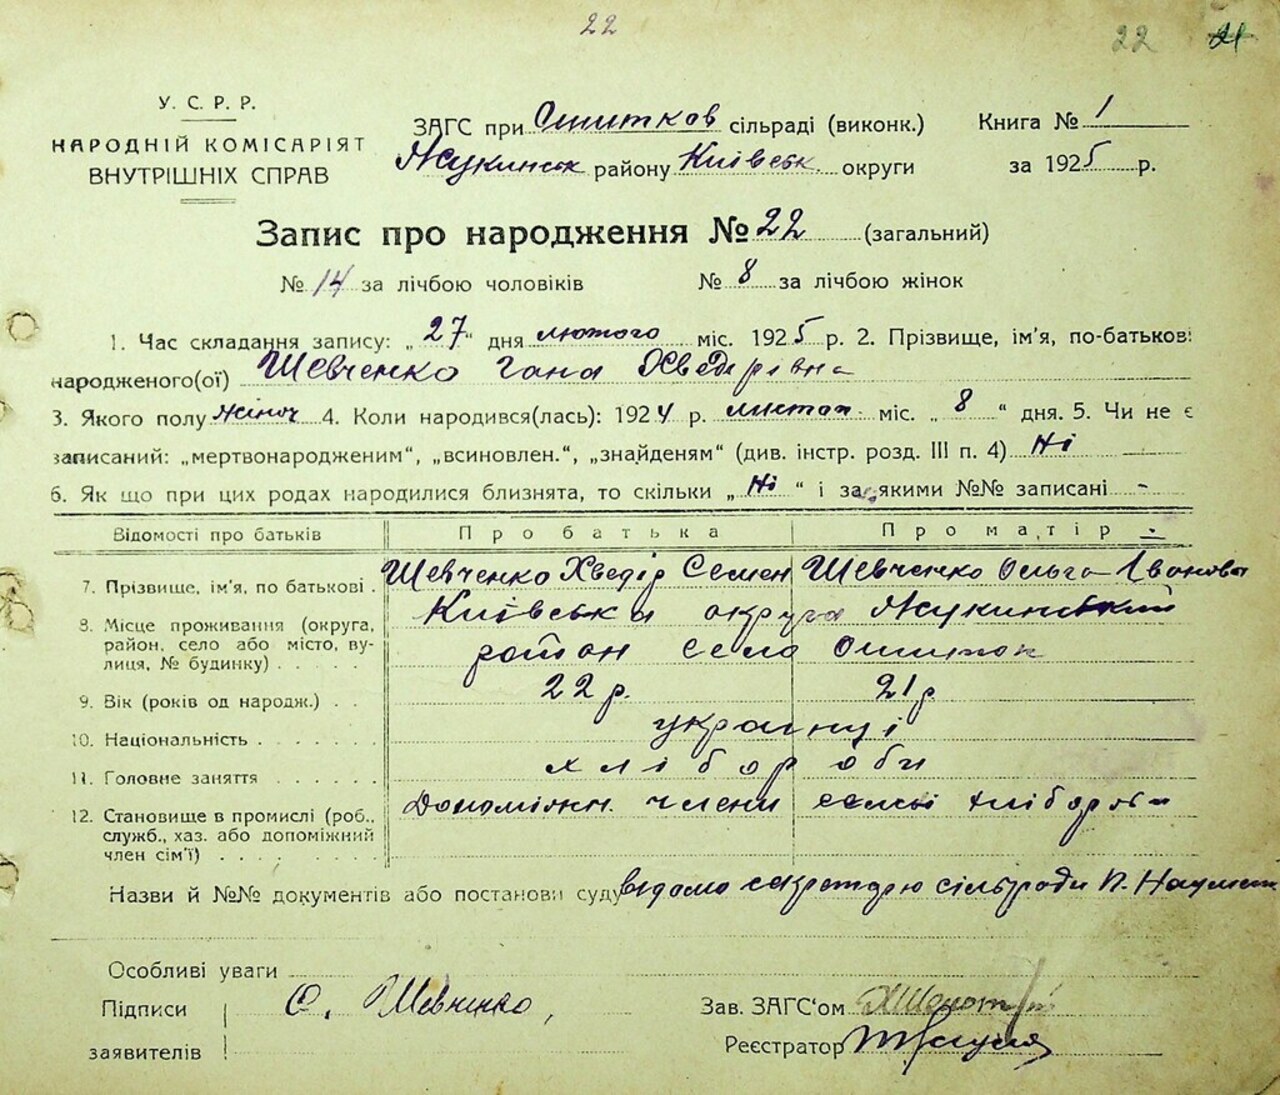 22
22 21
У. С. Р. Р.
НАРОДНІЙ КОМІСАРІЯТ
ВНУТРІШНІХ СПРАВ
ЗАГС при Ошитков сільраді (виконк.)
Жукинськ району Київськ. округи
Книга № 1
за 1925 р.
Запис про народження № 22 (загальний)
№ 14 за лічбою чоловіків № 8 за лічбою жінок
1. Час складання запису: „27“ дня лютого міс. 1925 р. 2. Прізвище, ім'я, по-батькові
народженого(ої) Шевченко Гана Хведірівна
3. Якого полу жіноч 4. Коли народився(лась): 1924 р. листоп. міс. „8“ дня. 5. Чи не є
записаний: „мертвонародженим“, „всиновлен.“, „знайденям“ (див. інстр. розд. III п. 4) Ні
6. Як що при цих родах народилися близнята, то скільки „Ні“ і за якими №№ записані -
Відомості про батьків Про батька Про матір
7. Прізвище, ім'я, по батькові . Шевченко Хведір Семен Шевченко Ольга Іванова
8. Місце проживання (округа, Київська округа Жукинський
район, село або місто, ву- район село Ошиток
лиця, № будинку) . . . .
9. Вік (років од народж.) . . 22 р. 21 р
10. Національність . . . . . . . українці
11. Головне заняття . . . . . . хлібороби
12. Становище в промислі (роб., Допоміжн. члени семьі хлібороби
служб., хаз. або допоміжний
член сім'ї) . . . . . . . .
Назви й №№ документів або постанови суду відомо секретарю сільради П.
Особливі уваги
Підписи О. Шевченко,
заявителів
Зав. ЗАГС'ом
Реєстратор